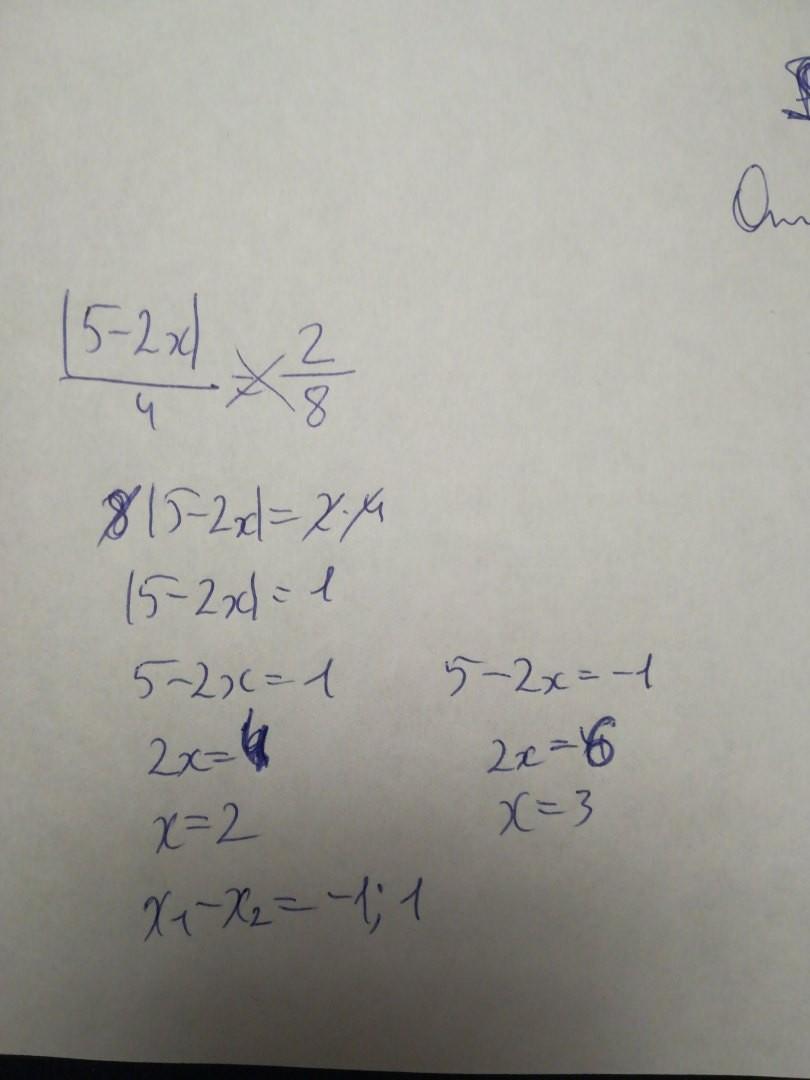 |5-2x|/4 = 2/8
8|5-2x|=2·4
|5-2x|=1
5-2x=1 5-2x=-1
2x=4 2x=6
x=2 x=3
x₁-x₂=-1; 1